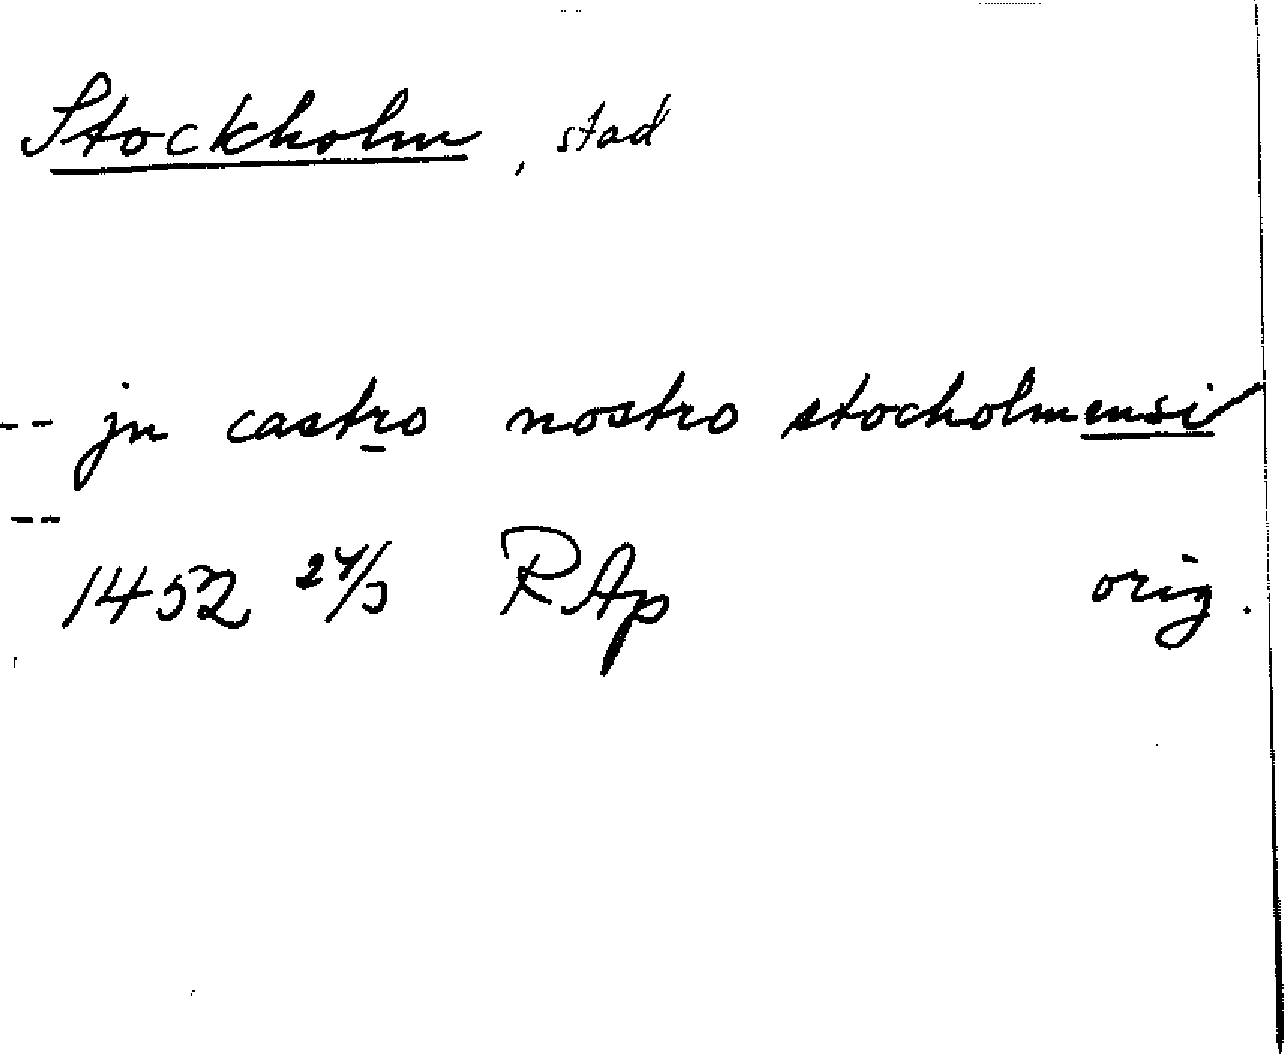 Stockholm, stad
-- jn castro nostro stocholmensi
--
1452 24/3 RAp orig.